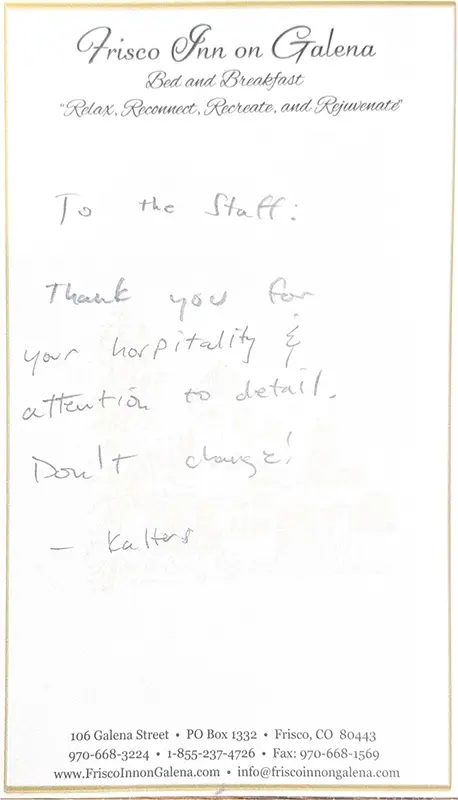 Frisco Inn on Galena
Bed and Breakfast
"Relax, Reconnect, Recreate, and Rejuvenate"
To the Staff:
Thank you for
your hospitality &
attention to detail.
Don't change!
- Kalters
106 Galena Street • PO Box 1332 • Frisco, CO 80443
970-668-3224 • 1-855-237-4726 • Fax: 970-668-1569
www.FriscoInnonGalena.com • info@friscoinnongalena.com